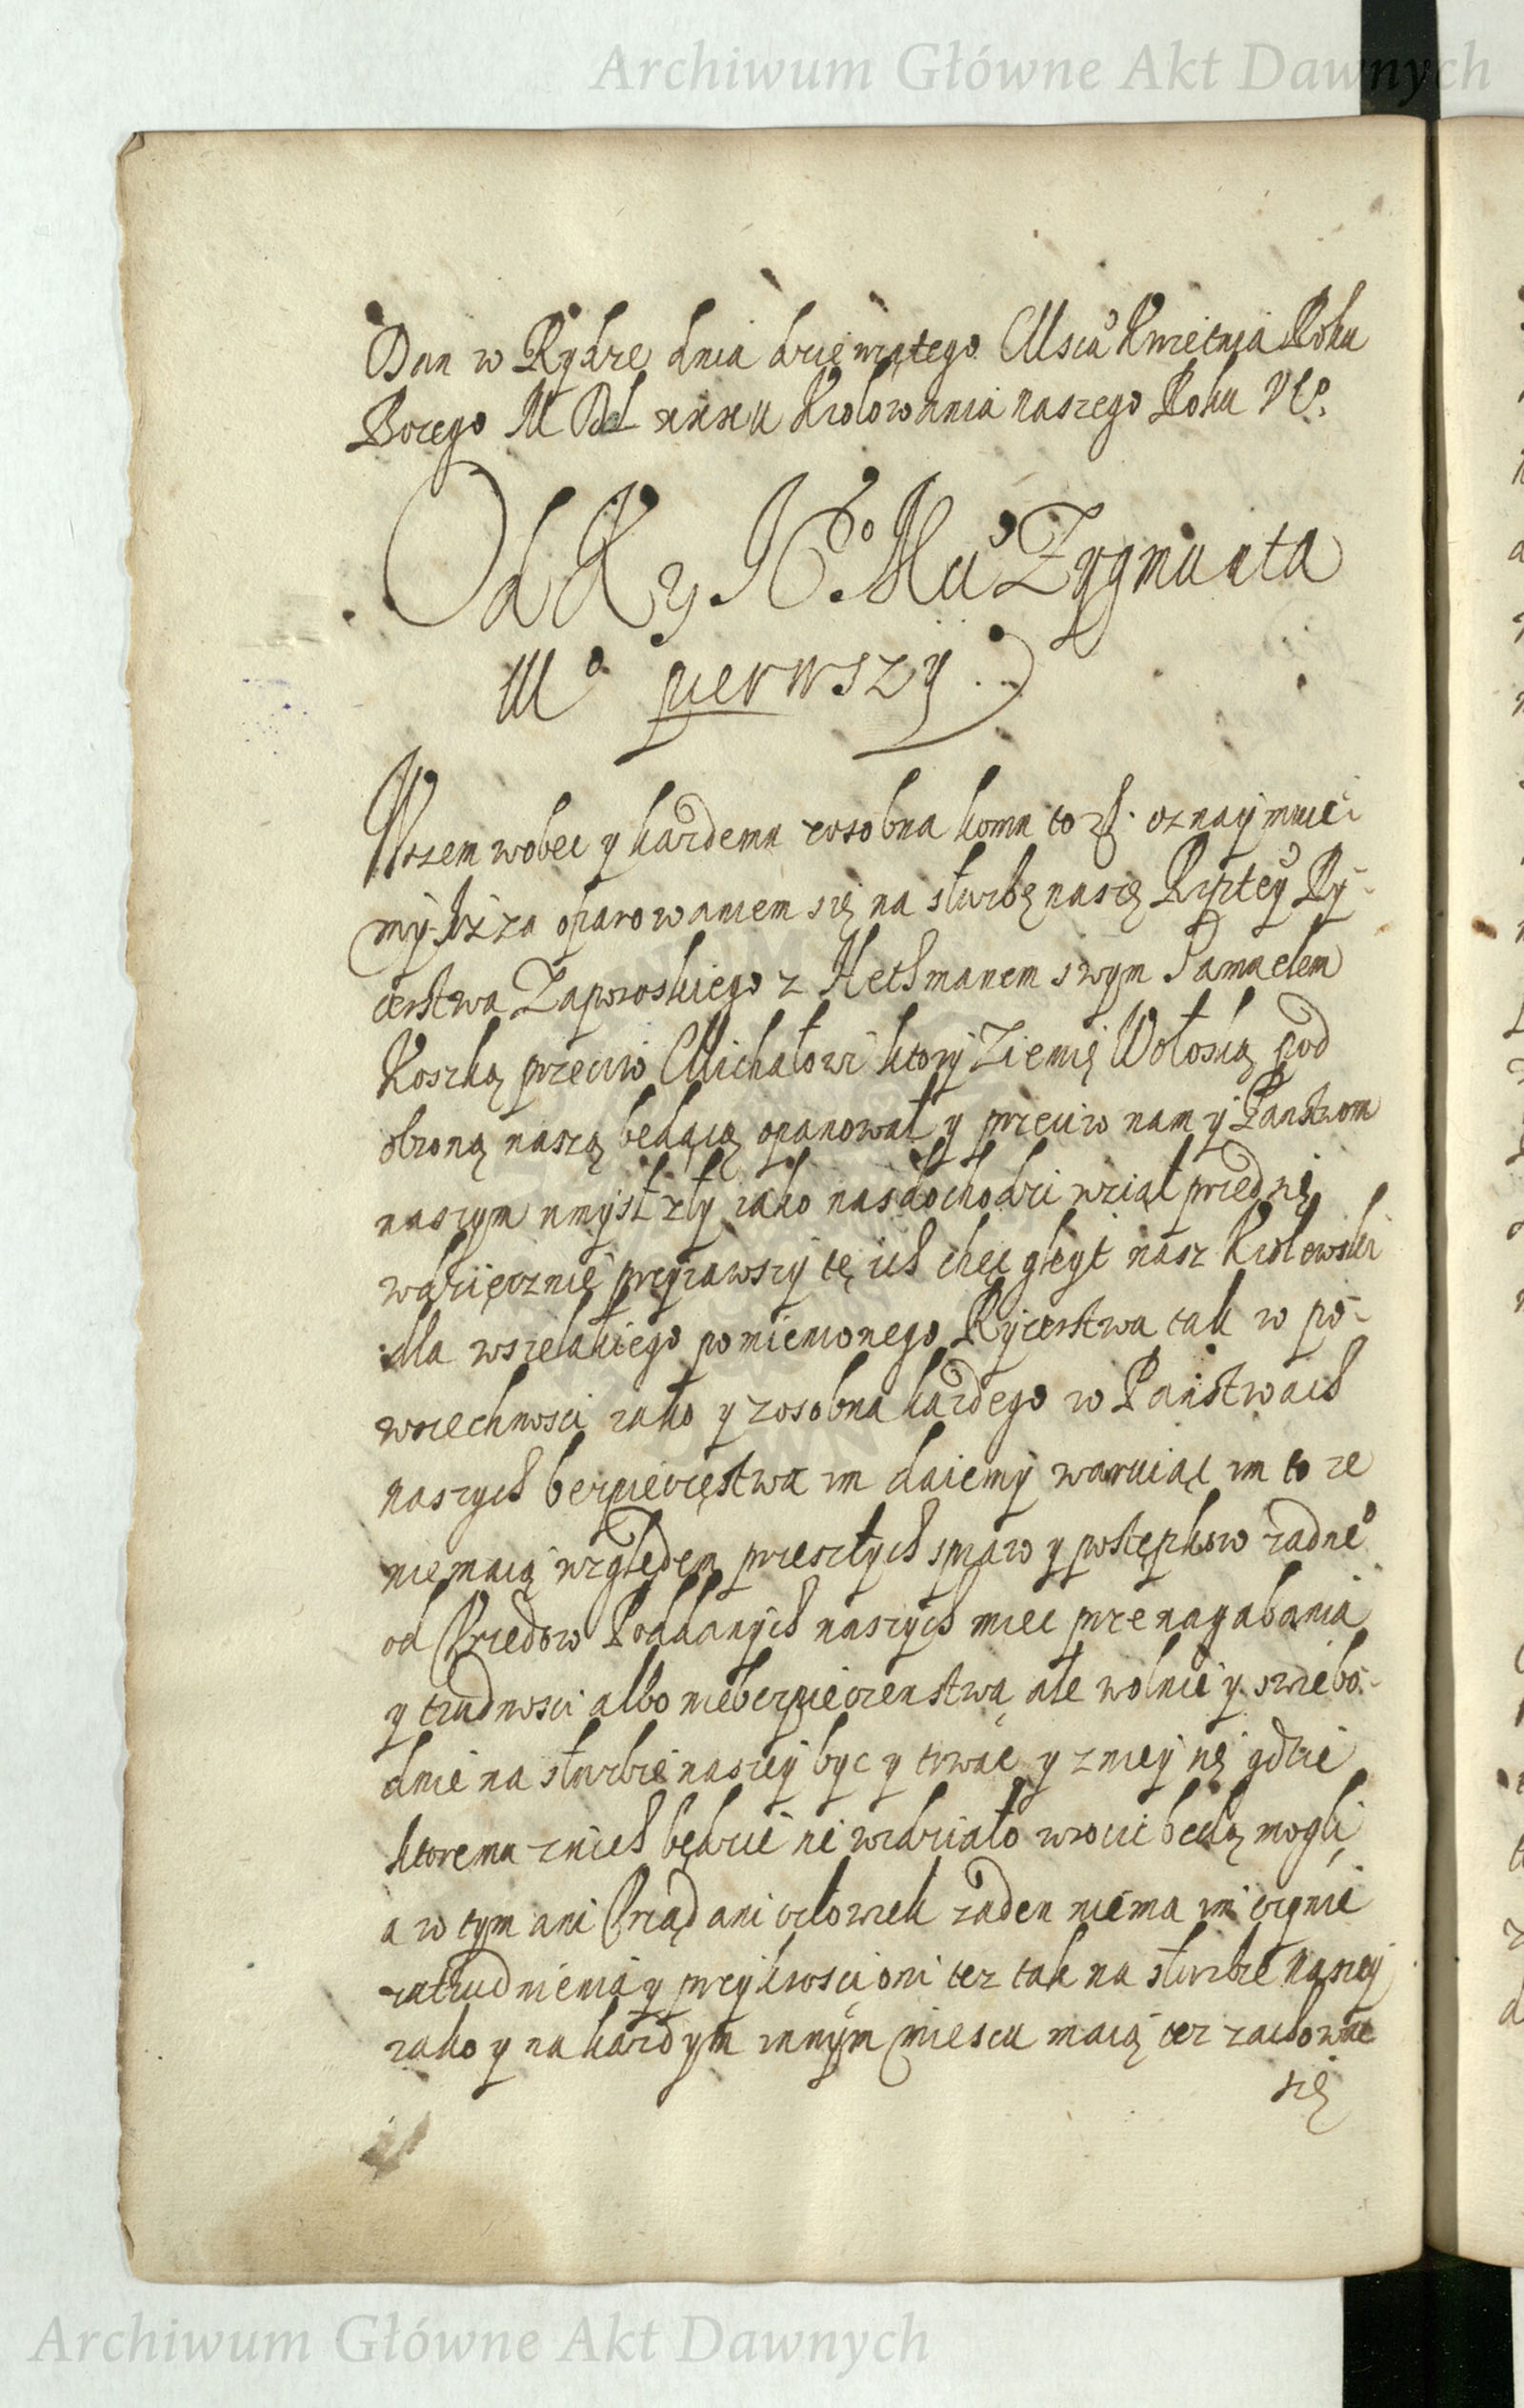 Archiwum Główne Akt Dawnych
Dan w Rydze dnia dziewiątego Msca Kwietnia Roku
Bozego M Krolowania naszego Roku
Od K y Mci Zygmunta
III° pierwszy
Wszem wobec y kazdemu zosobna komu to oznaymuie
my Iz za oparowaniem się na sluzbę naszę Rzptey Ry-
cerstwa Zaporoskiego z Hethmanem swym Samuelem
Koszką przeciw Michałowi ktory Ziemię Wołoską pod
obroną naszą będącą opanował y przeciw nam y Panstwom
naszym umysł zły iako nas dochodzi wziął przed się
wdzięcznie przyiawszy tę ich chęć gleyt nasz Krolewski
dla wszelakiego pomienionego Rycerstwa tak w po-
wszechnosci iako y zosobna kazdego w Panstwach
naszych bezpieczęstwa im daiemy waruiąc im to ze
nie maią względem przeszłych spraw y postępkow zadne°
od Vrzedow Poddanych naszych miec prze nagabania
y trudnosci albo niebezpieczenstwa ale wolnie y swiebo-
dnie na sluzbie naszey byc y trwac y z niey się gdzie
ktoremu z nich będzie się widziało wrocic będą mogli
a w tym ani Vrząd ani człowiek zaden niema im czynic
zatrudnienia y przykrosci oni tez tak na sluzbie naszey
iako y na kazdym innym miescu maią tez zachowac
się
Archiwum Główne Akt Dawnych